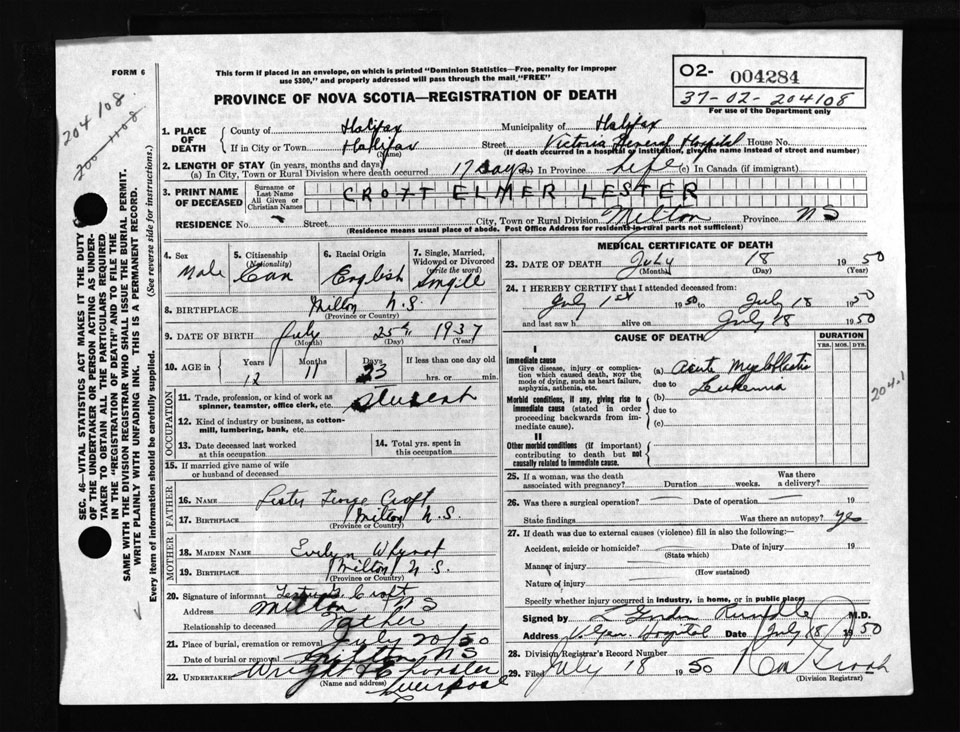 FORM 6
204108.
200-1108
This form if placed in an envelope, on which is printed "Dominion Statistics—Free, penalty for improper
use $300," and properly addressed will pass through the mail "FREE"
O2- 004284
37-02-204108
For use of the Department only
PROVINCE OF NOVA SCOTIA—REGISTRATION OF DEATH
SEC. 46—VITAL STATISTICS ACT MAKES IT THE DUTY
OF THE UNDERTAKER OR PERSON ACTING AS UNDER-
TAKER TO OBTAIN ALL THE PARTICULARS REQUIRED
IN THE "REGISTRATION OF DEATH" AND TO FILE THE
SAME WITH THE DIVISION REGISTRAR WHO SHALL ISSUE THE BURIAL PERMIT.
WRITE PLAINLY WITH UNFADING INK. THIS IS A PERMANENT RECORD.
Every item of information should be carefully supplied. (See reverse side for instructions.)
1. PLACE OF DEATH
County of Halifax Municipality of Halifax
If in City or Town Halifax Street Victoria General Hospital House No.
(Name) (If death occurred in a hospital or institution, give the name instead of street and number)
2. LENGTH OF STAY (in years, months and days)
(a) In City, Town or Rural Division where death occurred 17 Days (b) In Province Life (c) In Canada (if immigrant)
3. PRINT NAME OF DECEASED
Surname or Last Name
All Given or Christian Names
CROFT ELMER LESTER
RESIDENCE No. Street City, Town or Rural Division Milton Province NS
(Residence means usual place of abode. Post Office Address for residents in rural parts not sufficient)
4. Sex Male
5. Citizenship (Nationality) Can
6. Racial Origin English
7. Single, Married, Widowed or Divorced (write the word)
8. BIRTHPLACE Milton N.S.
(Province or Country)
9. DATE OF BIRTH July 25th 1937
(Month) (Day) (Year)
10. AGE in Years Months Days If less than one day old
12 11 23 hrs. or min.
OCCUPATION
11. Trade, profession or kind of work as
spinner, teamster, office clerk, etc. Student
12. Kind of industry or business, as cotton-
mill, lumbering, bank, etc.
13. Date deceased last worked
at this occupation
14. Total yrs. spent in
this occupation
15. If married give name of wife
or husband of deceased
FATHER
16. NAME Croft
17. BIRTHPLACE Milton N.S.
(Province or Country)
MOTHER
18. MAIDEN NAME Evelyn Whynot
19. BIRTHPLACE Milton N.S.
(Province or Country)
20. Signature of informant Croft
Address Milton NS
Relationship to deceased Father
21. Place of burial, cremation or removal July 20/50
Date of burial or removal NS
22. UNDERTAKER Wright
(Name and address) Liverpool
MEDICAL CERTIFICATE OF DEATH
23. DATE OF DEATH July 18 1950
(Month) (Day) (Year)
24. I HEREBY CERTIFY that I attended deceased from:
July 1st 1950 to July 18 1950
and last saw h alive on July 18 1950
CAUSE OF DEATH
DURATION
YRS. MOS. DYS.
I
Immediate cause
Give disease, injury or complica-
tion which caused death, not the
mode of dying, such as heart failure,
asphyxia, asthenia, etc.
(a) Acute Myeloblastic
due to Leukemia
204.1
Morbid conditions, if any, giving rise to
immediate cause (stated in order
proceeding backwards from im-
mediate cause).
(b)
due to
(c)
II
Other morbid conditions (if important)
contributing to death but not
causally related to immediate cause.
25. If a woman, was the death
associated with pregnancy? Duration weeks. Was there
a delivery?
26. Was there a surgical operation? Date of operation 19
State findings Was there an autopsy? yes
27. If death was due to external causes (violence) fill in also the following:—
Accident, suicide or homicide? Date of injury 19
(State which)
Manner of injury
(How sustained)
Nature of injury
Specify whether injury occurred in industry, in home, or in public place
Signed by M.D.
Address V. Gen. Hospital Date July 18 1950
28. Division Registrar's Record Number
29. Filed July 18 1950
(Division Registrar)